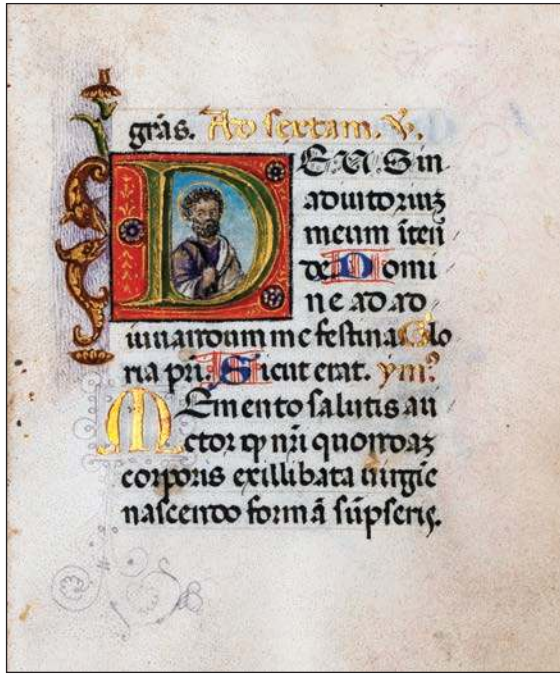 grãs. Ad sextam. ℣.
DEUS in
adiutoriuz
meum ĩten
de Domi
ne ad ad
iuuandum me festina Glo
ria pri. Sicut erat. ymꝰ
Memento salutis au
ctor qp nr̃i quondaz
corporis exillibata uirgĩe
nascendo formã sũpseris.